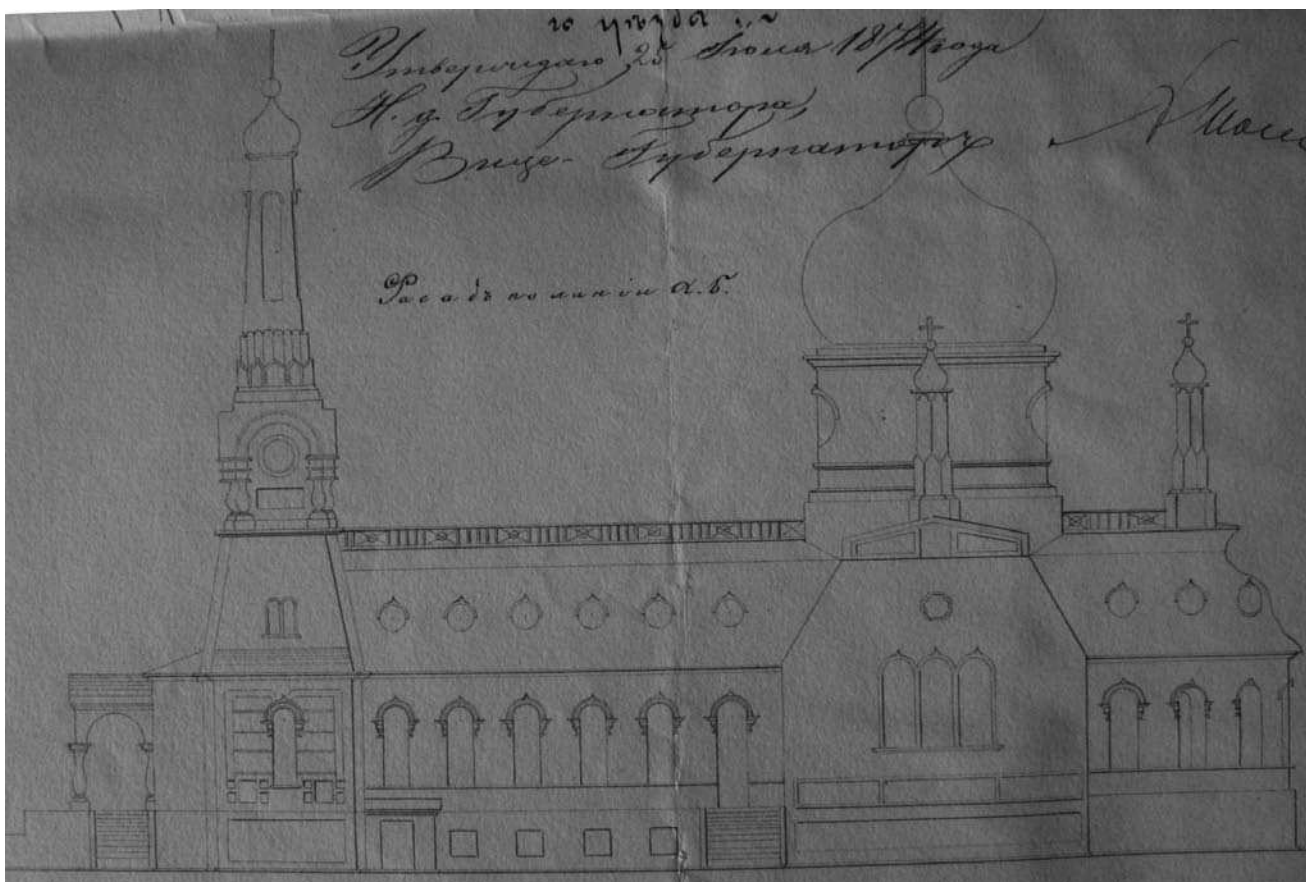 го уѣзда
Утверждаю 25 Июля 1874 года
И. д. Губернатора,
Вице-Губернаторъ
Фасадъ по линіи а.б.